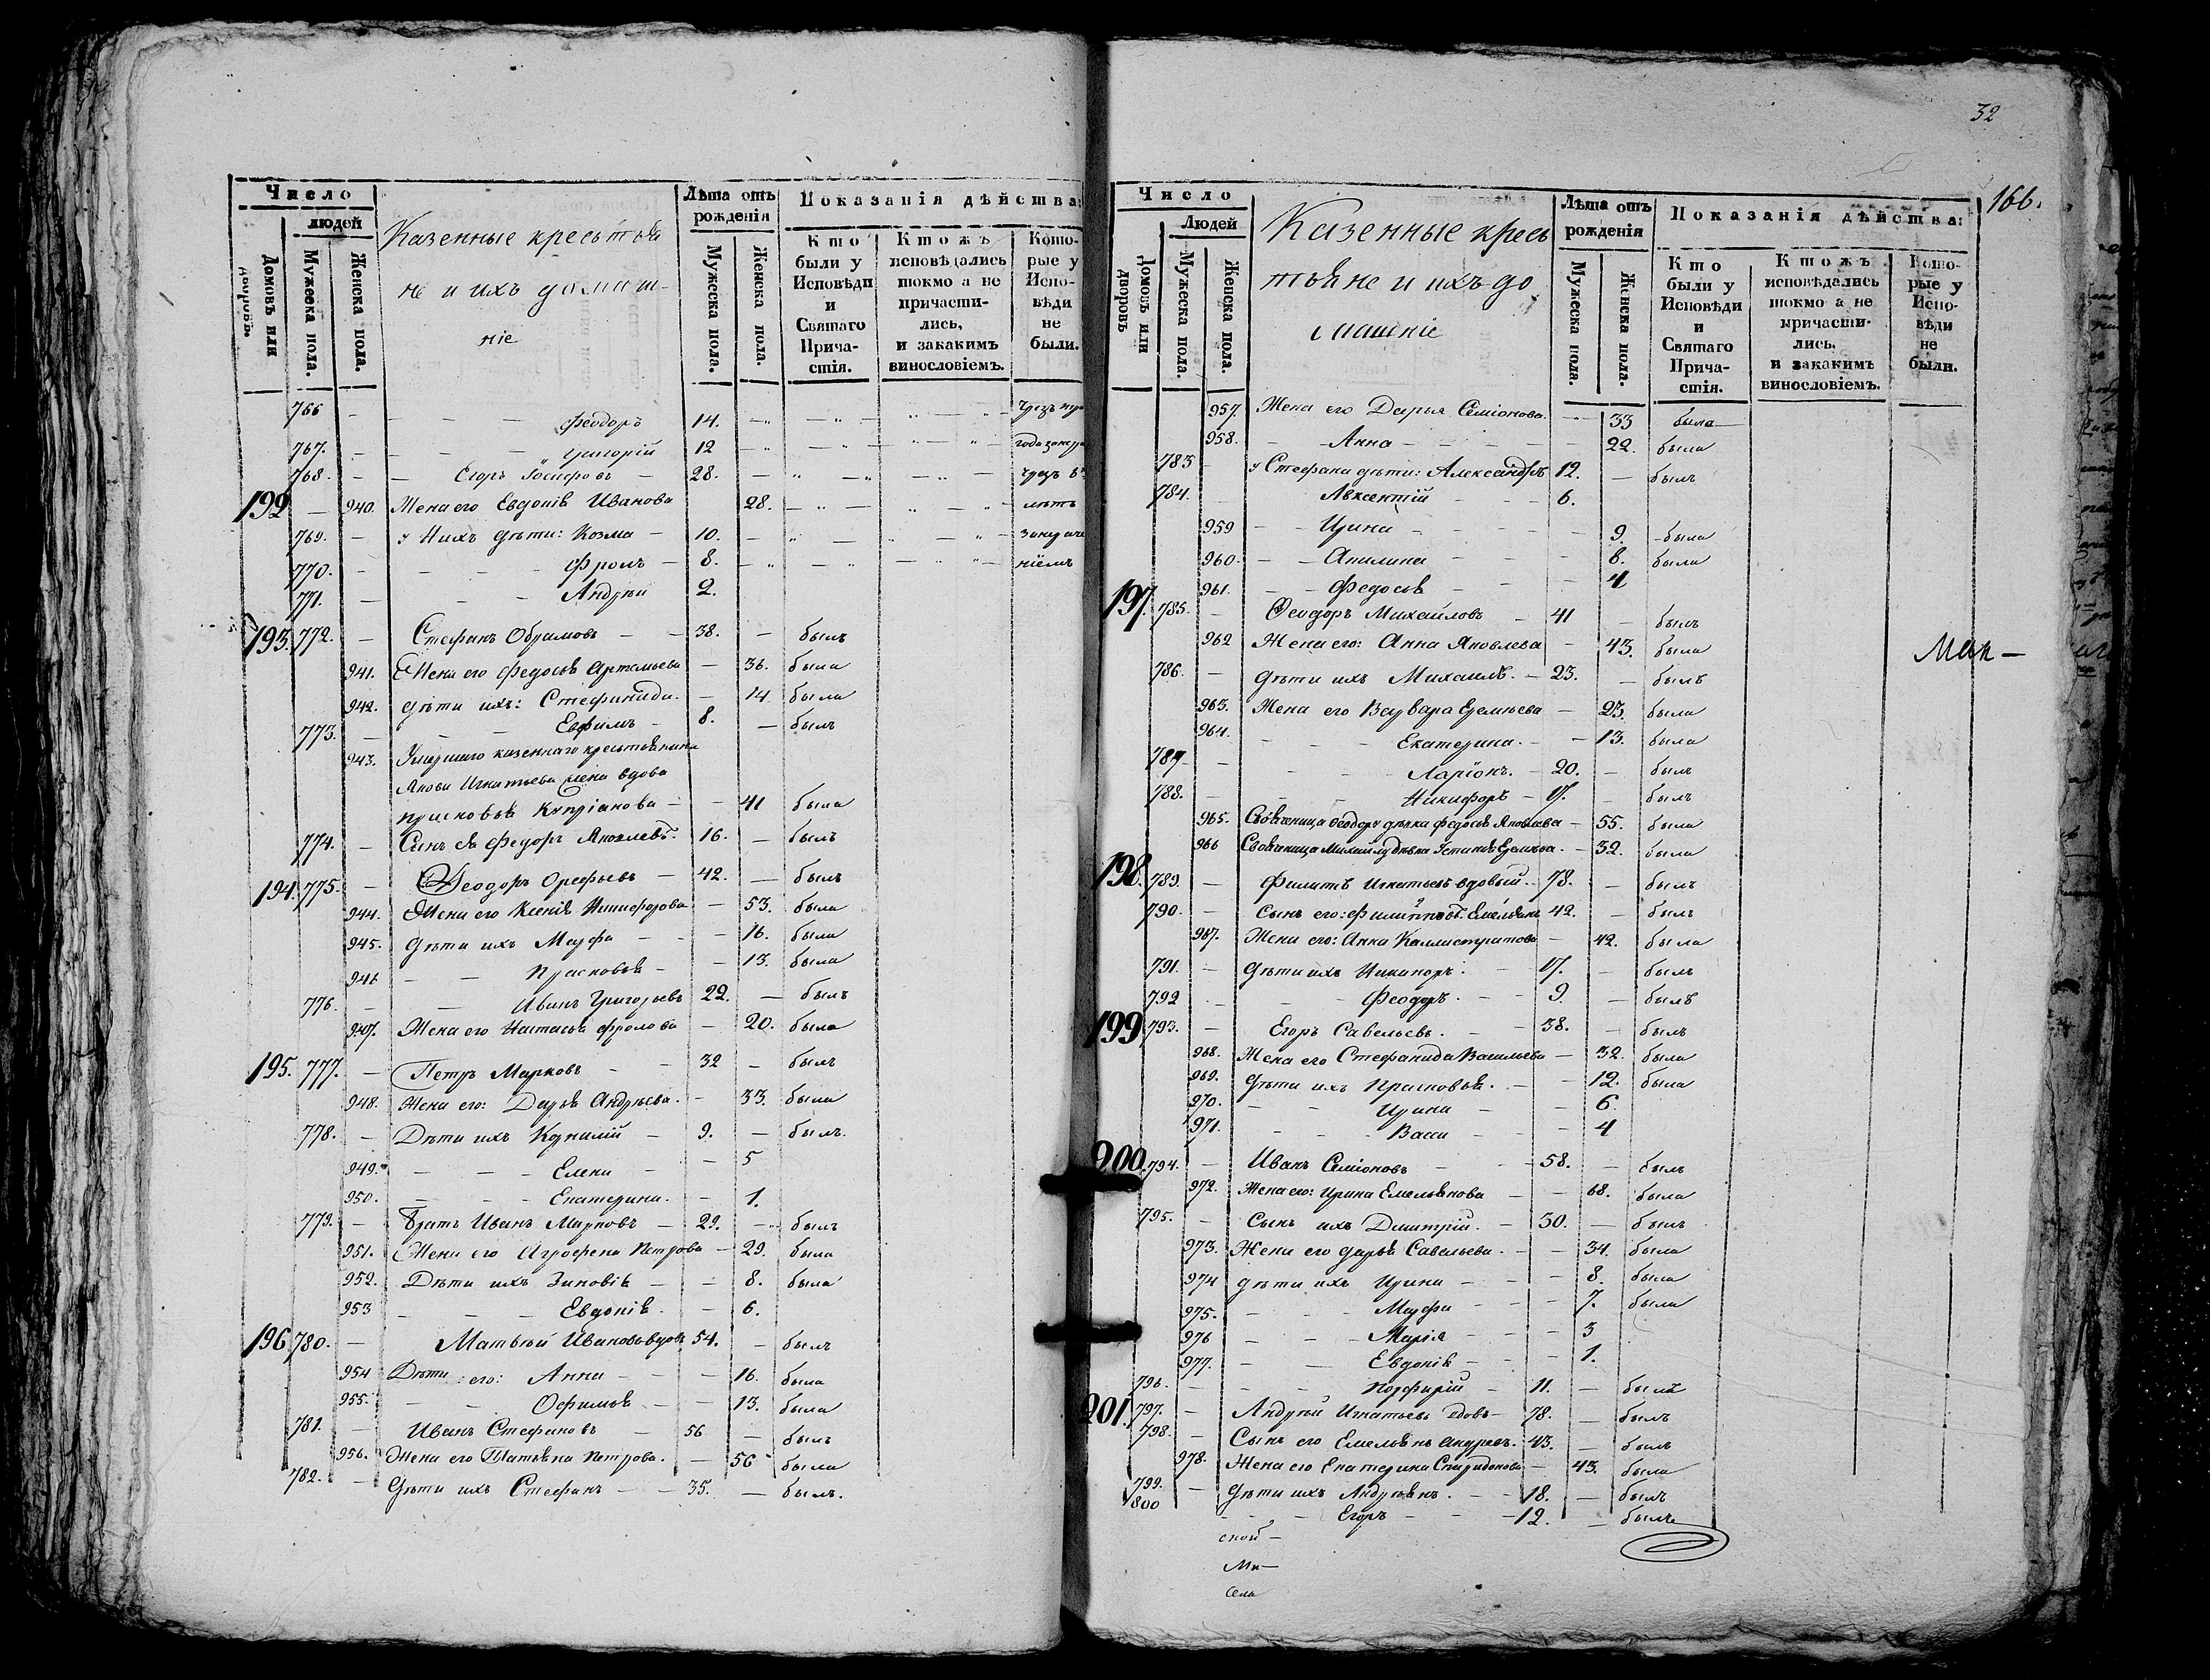 Число
людей
Домовъ или дворовъ.
Мужеска пола.
Женска пола.
Казенные крестья
не и ихъ домаш-
ніе
Лѣта отъ рожденія
Мужеска пола.
Женска пола.
Показанія дѣйства:
Кто были у Исповѣди и Святаго Причастія.
Ктожъ исповѣдались токмо а не причастились, и закакимъ винословіемъ.
Которые у Исповѣди не были.
766 — Феодоръ 14.
767. — Григорій 12
768. — Егоръ Іосифовъ — 28. чрезъ
192 — 940. Жена его Евдокія Иванова 28. лѣтъ
769. — у Нихъ дѣти: Козма — 10.
770. — Фролъ — 8. ніемъ
771. — Андрей 2.
193. 772. — Стефанъ Обрамовъ — 38. — былъ
941. Жена его Федосья Артемьева — 36. была
942. дѣти ихъ: Стефанида. — 14 была
773. — Ефимъ — 8. — былъ
943. Умершаго казеннаго крестьянина
Якова Игнатьева жена вдова
Прасковья Купріанова — 41 была
774. — Сынъ ея Федоръ Яковлевъ. 16. — былъ
194. 775. — Феодоръ Орефьевъ — 42. — былъ
944. Жена его Ксенія Никифорова — 53. была
945. дѣти ихъ Марфа — 16. была
946 — Прасковья — 13. была
776. — Иванъ Григорьевъ 22. — былъ
947. Жена его Настасья Фролова — 20. была
195. 777. — Петръ Марковъ — 32 — былъ
948. Жена его: Дарья Андреева. — 33. была
778. — Дѣти ихъ Корнилій — 9. — былъ.
949. — Елена — 5
950. — Екатерина. — 1.
779. — Братъ Иванъ Марковъ — 29. — былъ
951. Жена его Агрофена Петрова — 29. была
952. Дѣти ихъ Зиновія — 8. была
953 — Евдокія. — 6.
196 780. — Матвѣй Ивановъ вдовъ 54. — былъ
954 Дѣти его: Анна — 16. была
955. — Офимья — 13. была
781. — Иванъ Стефановъ — 56 — былъ
956. Жена его Татьяна Петрова. — 56 была
782. — Дѣти ихъ Стефанъ — 35. — былъ.
32
166.
Число
Людей
Домовъ или дворовъ
Мужеска пола.
Женска пола.
Казенные крес
тьяне и ихъ до
машніе
Лѣта отъ рожденія
Мужеска пола.
Женска пола.
Показанія дѣйства:
Кто были у Исповѣди и Святаго Причастія.
Ктожъ исповѣдались токмо а не причастились, и закакимъ винословіемъ.
Которые у Исповѣди не были.
957. Жена его Дарья Семіонова. — 33 была
958. — Анна — 22. была
783 — у Стефана дѣти: Александръ 12. — былъ
784. — Авксентій — 6.
959 — Ирина — 9. была
960. — Акилина — 8. была
961. — Федосья — 4
197. 785. — Феодоръ Михайловъ — 41 — былъ
962 Жена его: Анна Яковлева — 43. была
Мик—
786. — дѣти ихъ Михаилъ. — 23. — былъ
963. Жена его Варвара Еремѣева — 23. была
964. — Екатерина. — 13. была
787 — Ларіонъ. — 20. — былъ
788. — Никифоръ — 17. — былъ
965. Своячиница Феодора дѣвка Федосья Яковлева — 55. была
966 Своячиница Михайлы дѣвка Устинья Еремѣева. — 32. была
198. 789. — Филипъ Игнатьевъ вдовый. — 78. — былъ
790. — Сынъ его: Филиповъ Емельянъ 42. — былъ
967. Жена его: Анна Каллистратова — 42. была
791. — Дѣти ихъ Никаноръ. — 17. — былъ
792 — Феодоръ. — 9. — былъ
199 793. — Егоръ Савельевъ. — 38. — былъ
968. Жена его Стефанида Васильева — 32. была
969. Дѣти ихъ Прасковья. — 12. была
970. — Ирина — 6.
971. — Васса — 4
200. 794. — Иванъ Семіоновъ — 58. — былъ
972. Жена его: Ирина Емельянова — 68. была
795. — Сынъ ихъ Дмитрій. — 30. — былъ
973. Жена его Дарья Савельева. — 34. была
974 дѣти ихъ Ирина — 8. была
975. — Марфа — 7. была
976 — Марія — 3
977. — Евдокія — 1.
796. — Порфирій — 11. — былъ
201. 797. — Андрей Игнатьевъ вдовъ — 78. — былъ
798. — Сынъ его Емельянъ Андреевъ. 43. — былъ
978. Жена его Екатерина Спиридонова — 43. была
799. — Дѣти ихъ Андреянъ. — 18. — былъ
800 — Егоръ — 12. — былъ
ской —
Ми—
села